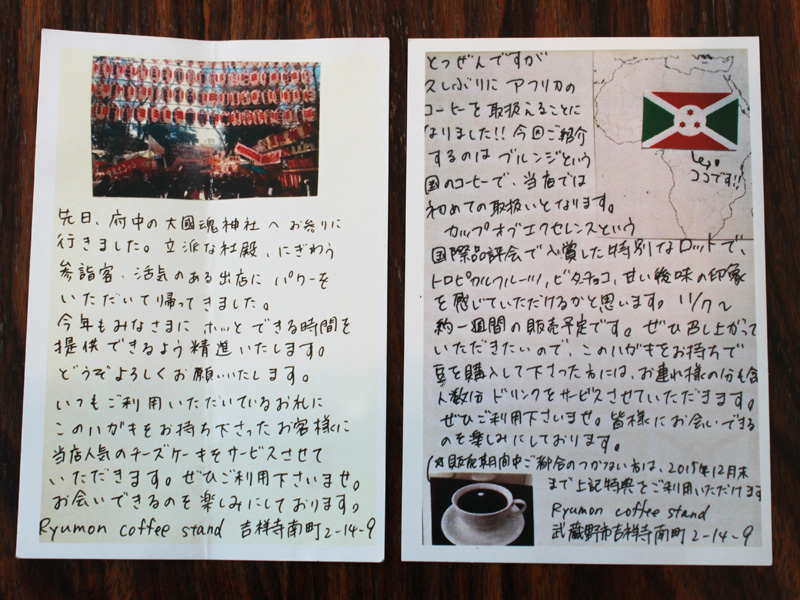 先日、府中の大國魂神社へお参りに
行きました。立派な社殿、にぎわう
参詣客、活気のある出店に パワーを
いただいて帰ってきました。
今年もみなさまに ホッとできる時間を
提供できるよう精進いたします。
どうぞよろしくお願いいたします。
いつもご利用いただいているお礼に
このハガキをお持ち下さったお客様に
当店人気のチーズケーキをサービスさせて
いただきます。ぜひご利用下さいませ。
お会いできるのを楽しみにしております。
Ryumon coffee stand 吉祥寺南町2-14-9
とつぜんですが
久しぶりに アフリカの
コーヒーを取扱えることに
なりました!! 今回ご紹介
するのは ブルンジという
国のコーヒーで、当店では
初めての取扱いとなります。
ココです!!
カップオブエクセレンスという
国際品評会で入賞した特別なロットで、
トロピカルフルーツ、ビタチョコ、甘い後味の印象
を感じていただけるかと思います。11/7〜
約一週間の販売予定です。ぜひ召し上がって
いただきたいので、このハガキをお持ちで
豆を購入して下さった方には、お連れ様の分も含
人数分ドリンクをサービスさせていただきます。
ぜひご利用下さいませ。皆様にお会いできる
のを楽しみにしております。
(※販売期間中ご都合のつかない方は、2015年12月末
まで上記特典をご利用いただけます
Ryumon coffee stand
武蔵野市吉祥寺南町2-14-9